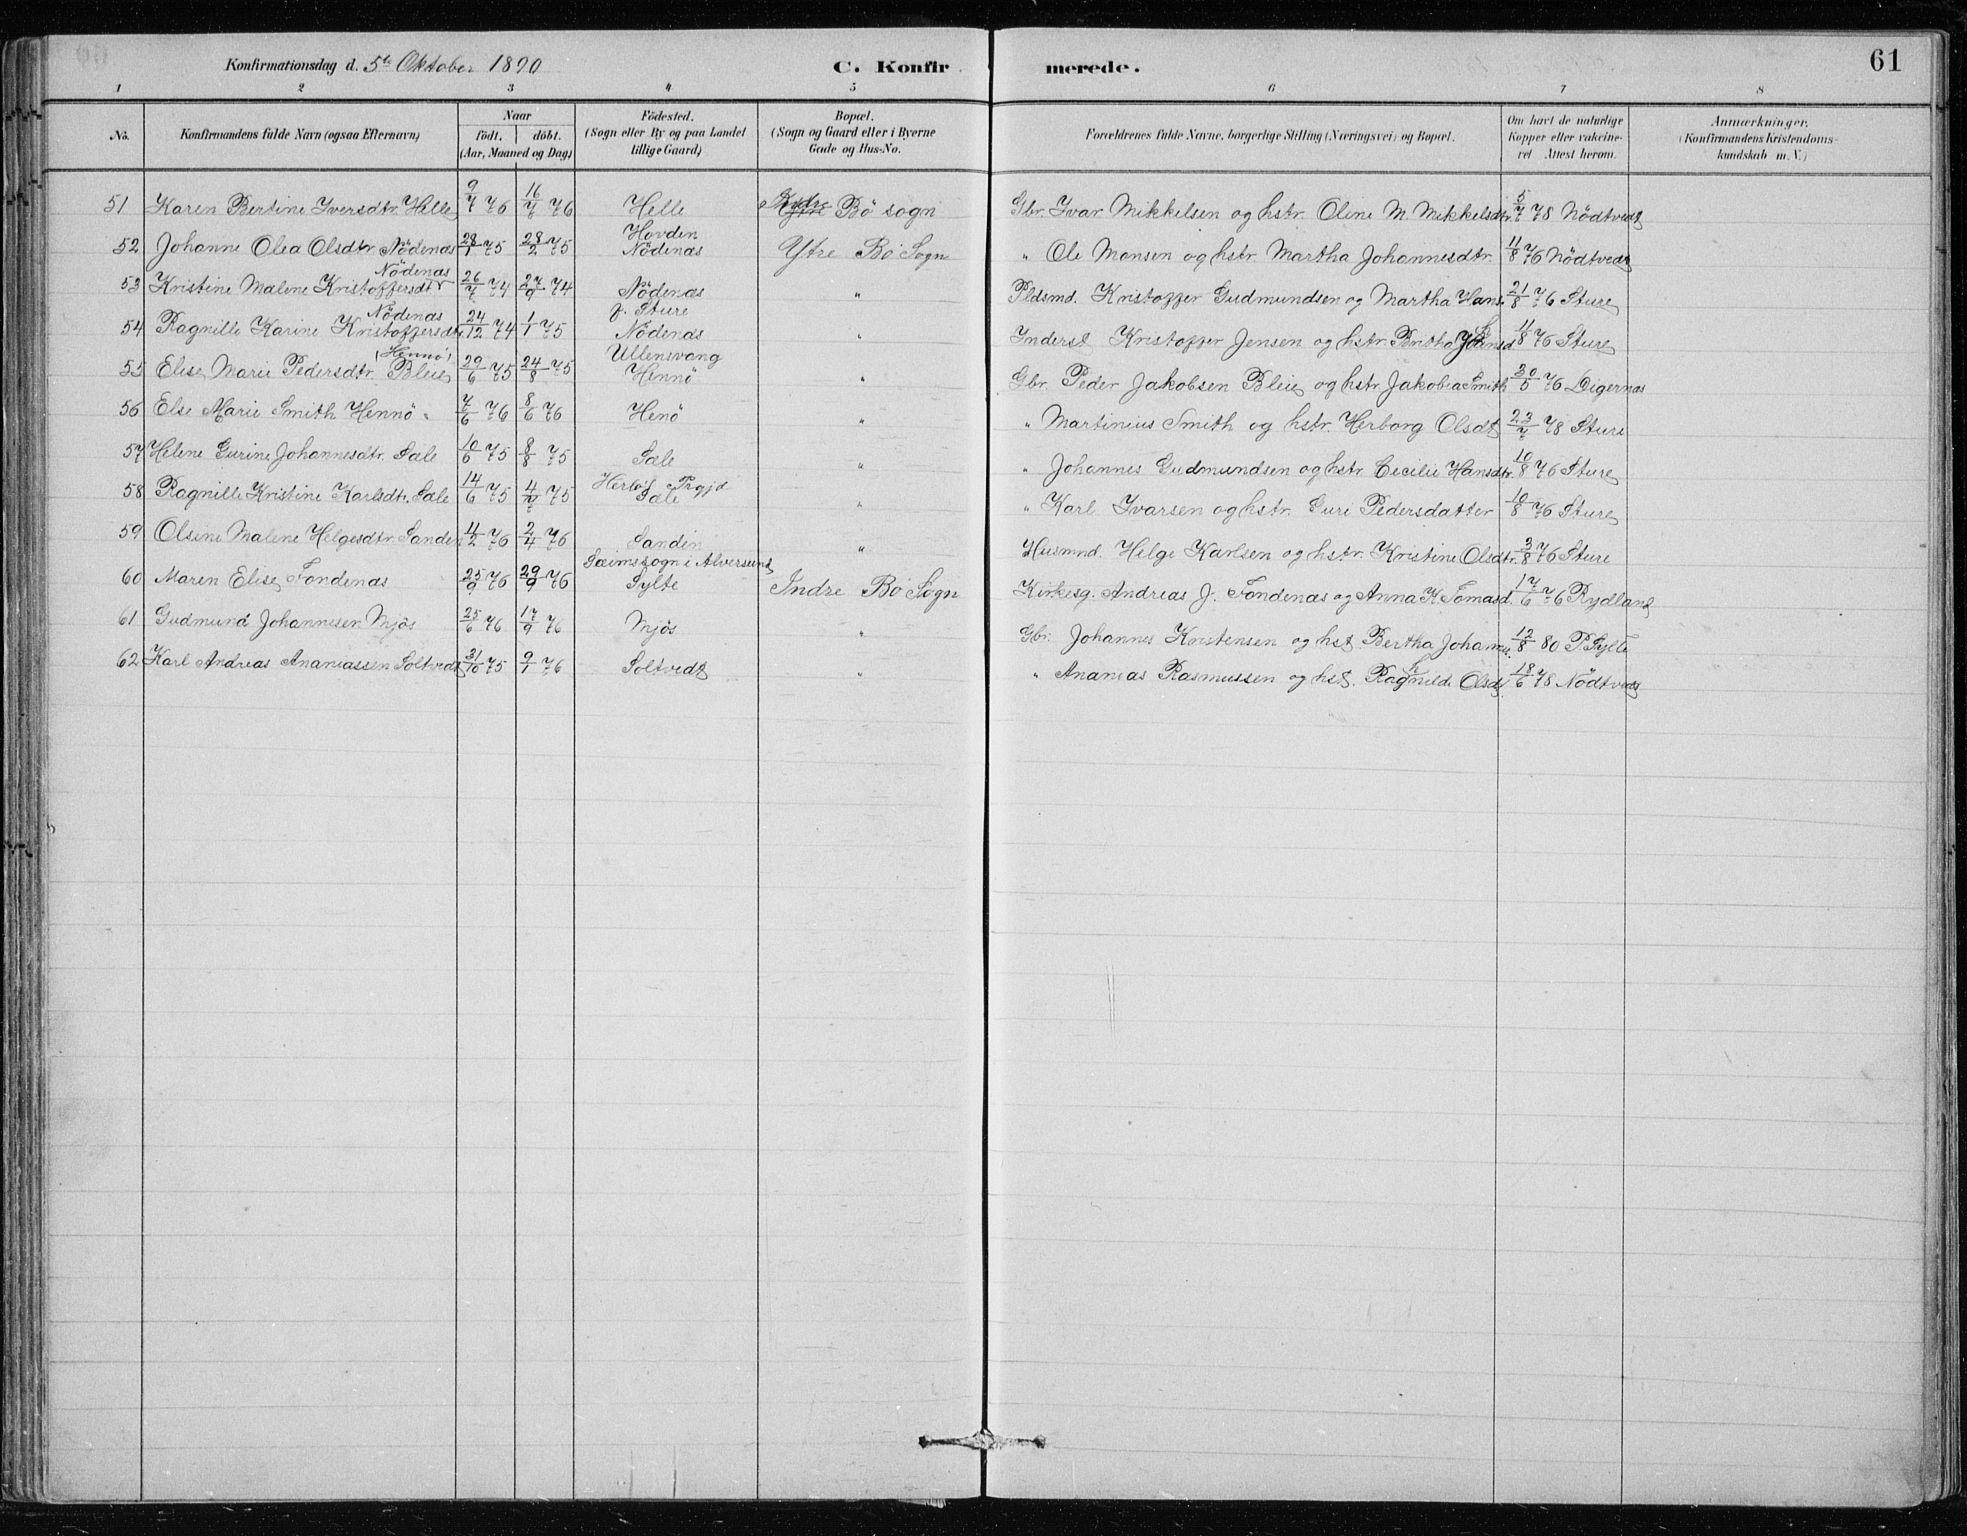 61
Konfirmationsdag d. 5te Oktober 1890 C. Konfirmerede.
1 2 3 4 5 6 7 8
No. Konfirmandens fulde Navn (ogsaa Efternavn) Naar født. døbt. (Aar, Maaned og Dag) Födested. (Sogn eller By og paa Landet tillige Gaard) Bopæl. (Sogn og Gaard eller i Byerne Gade og Hus-No. Forældrenes fulde Navne, borgerlige Stilling (Næringsvei) og Bopæl. Om havt de naturlige Kopper eller vakcineret Attest herom. Anmærkninger. (Konfirmandens Kristendomskundskab m. V.)
51 Karen Bertine Iversdtr. Helle 9/7 76 16/7 76 Helle Indre Bö sogn Gbr. Ivar Mikkelsen og hstr. Oline M. Mikkelsdtr. 5/7 78 Nödtvedt
52 Johanne Olea Olsdtr Nödenas 28/1 75 28/2 75 Hovden Nödenas Ytre Bö Sogn " Ole Monsen og hstr. Martha Johannesdtr. 11/8 76 Nödtvedt
53 Kristine Malene Kristoffersdtr Nödenas 26/7 74 27/9 74 Nödenas " Pldsmd. Kristoffer Gudmundsen og Martha Hans. 21/8 76 Sture
54 Ragnille Karine Kristoffersdtr. Nödenas 24/12 74 1/1 75 f. Sture Nödenas " Inderst Kristoffer Jensen og hstr. Bertha 11/8 76 Sture
55 Elise Marie Pedersdtr. Bleie (Hennö) 29/6 75 24/8 75 Ullensvang Hennö " Gbr. Peder Jakobsen Bleie og hstr. Jakobia Smith 30/5 76 Digernas
56 Else Marie Smith Hennö. 7/6 76 8/6 76 Henö " " Martinius Smith og hstr. Herborg Olsdt 23/7 78 Sture
57 Helene Gurine Johannesdtr. Sale 10/6 75 8/8 75 Sale " " Johannes Gudmundsen og hstr. Cecilie Hansdtr. 10/8 76 Sture
58 Ragnille Kristine Karlsdtr. Sale 14/6 75 4/7 75 Sale " " Karl Ivarsen og hstr. Guri Pedersdatter 10/8 76 Sture
59 Olsine Malene Helgesdtr. Sanden 4/2 76 2/4 76 Sanden " Husmnd. Helge Karlsen og hstr. Kristine Olsdtr. 3/8 76 Sture
60 Maren Elise Fondenas 25/9 76 29/9 76 Sæimssogn i Alversund Sylte Indre Bö Sogn Kirkesg. Andreas J. Fondenas og Anna K. Tomasd. 17/6 76 Rydland
61 Gudmund Johannesen Mjös 25/6 76 17/9 76 Mjös " Gbr. Johannes Kristensen og hst. Bertha Johannes. 12/8 80 P. Sylte
62 Karl Andreas Ananiassen Soltvedt 31/10 75 9/1 76 Soltvedt " " Ananias Rasmussen og hst. Ragnhilde Olsdt. 18/6 78 Nödtvedt